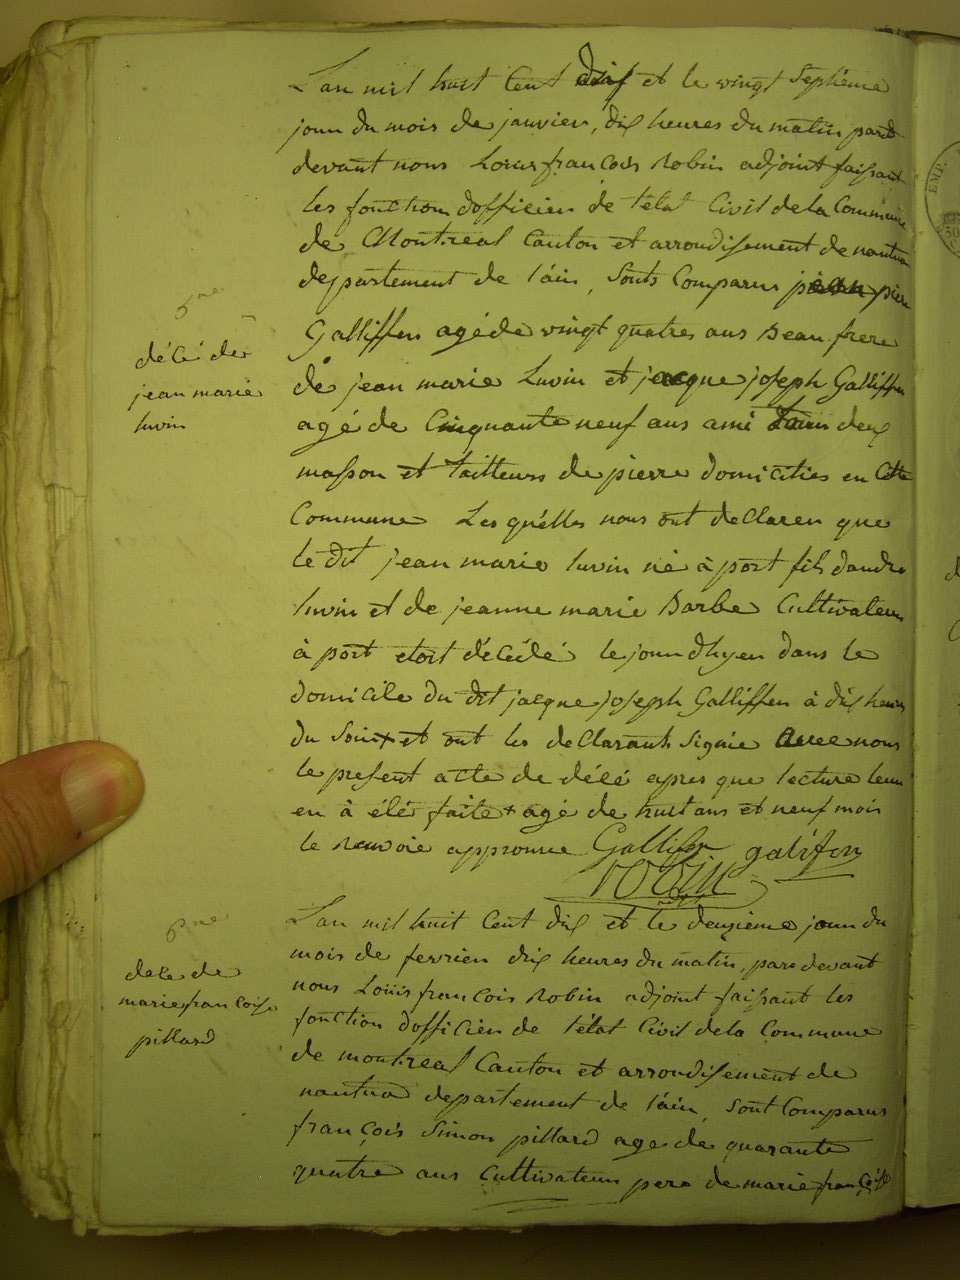 5me
décé de
jean marie
luvin
L'an mil huit Cent dix et le vingt Septieme
jour du mois de janvier, dix heures du matin pard
devant nous Louis francois Robin adjoint faissant
les fonction dofficier de l'état Civil de la Commune
de Montreal Canton et arrondisement de nantua
departement de l'ain, Sonts Comparus pierre
Galliffer agé de vingt quatres ans Beau frere
de jean marie Luvin et jacque joseph Galliffer
agé de Cinquante neuf ans ami tous deux
masson et tailleurs de pierre domiciliés en Cette
Commune Les quélles nous ont declaren que
le dit jean marie luvin né à port fils dandre
luvin et de jeanne marie Barbe Cultivateur
à port etoit décédé le jour dhyer dans le
domicile du dit jacque joseph Galliffer à dix heures
du Soir + et ont les declarants signée avec nous
le present acte de décé apres que lecture leur
en à été faite + agé de huit ans et neuf mois
le renvoie approuvee Galliffer galifer
robin
6me
décé de
marie francoise
pillard
L'an mil huit Cent dix et le deuxieme jour du
mois de fevrier dix heures du matin, pare devant
nous Louis francois Robin adjoint faissant les
fonction dofficier de l'état Civil de la Commune
de montreal Canton et arrondisement de
nantua departement de l'ain, Sont Comparus
françois Simon pillard age de quarante
quatre ans Cultivateur pere de marie françoise
EMP.